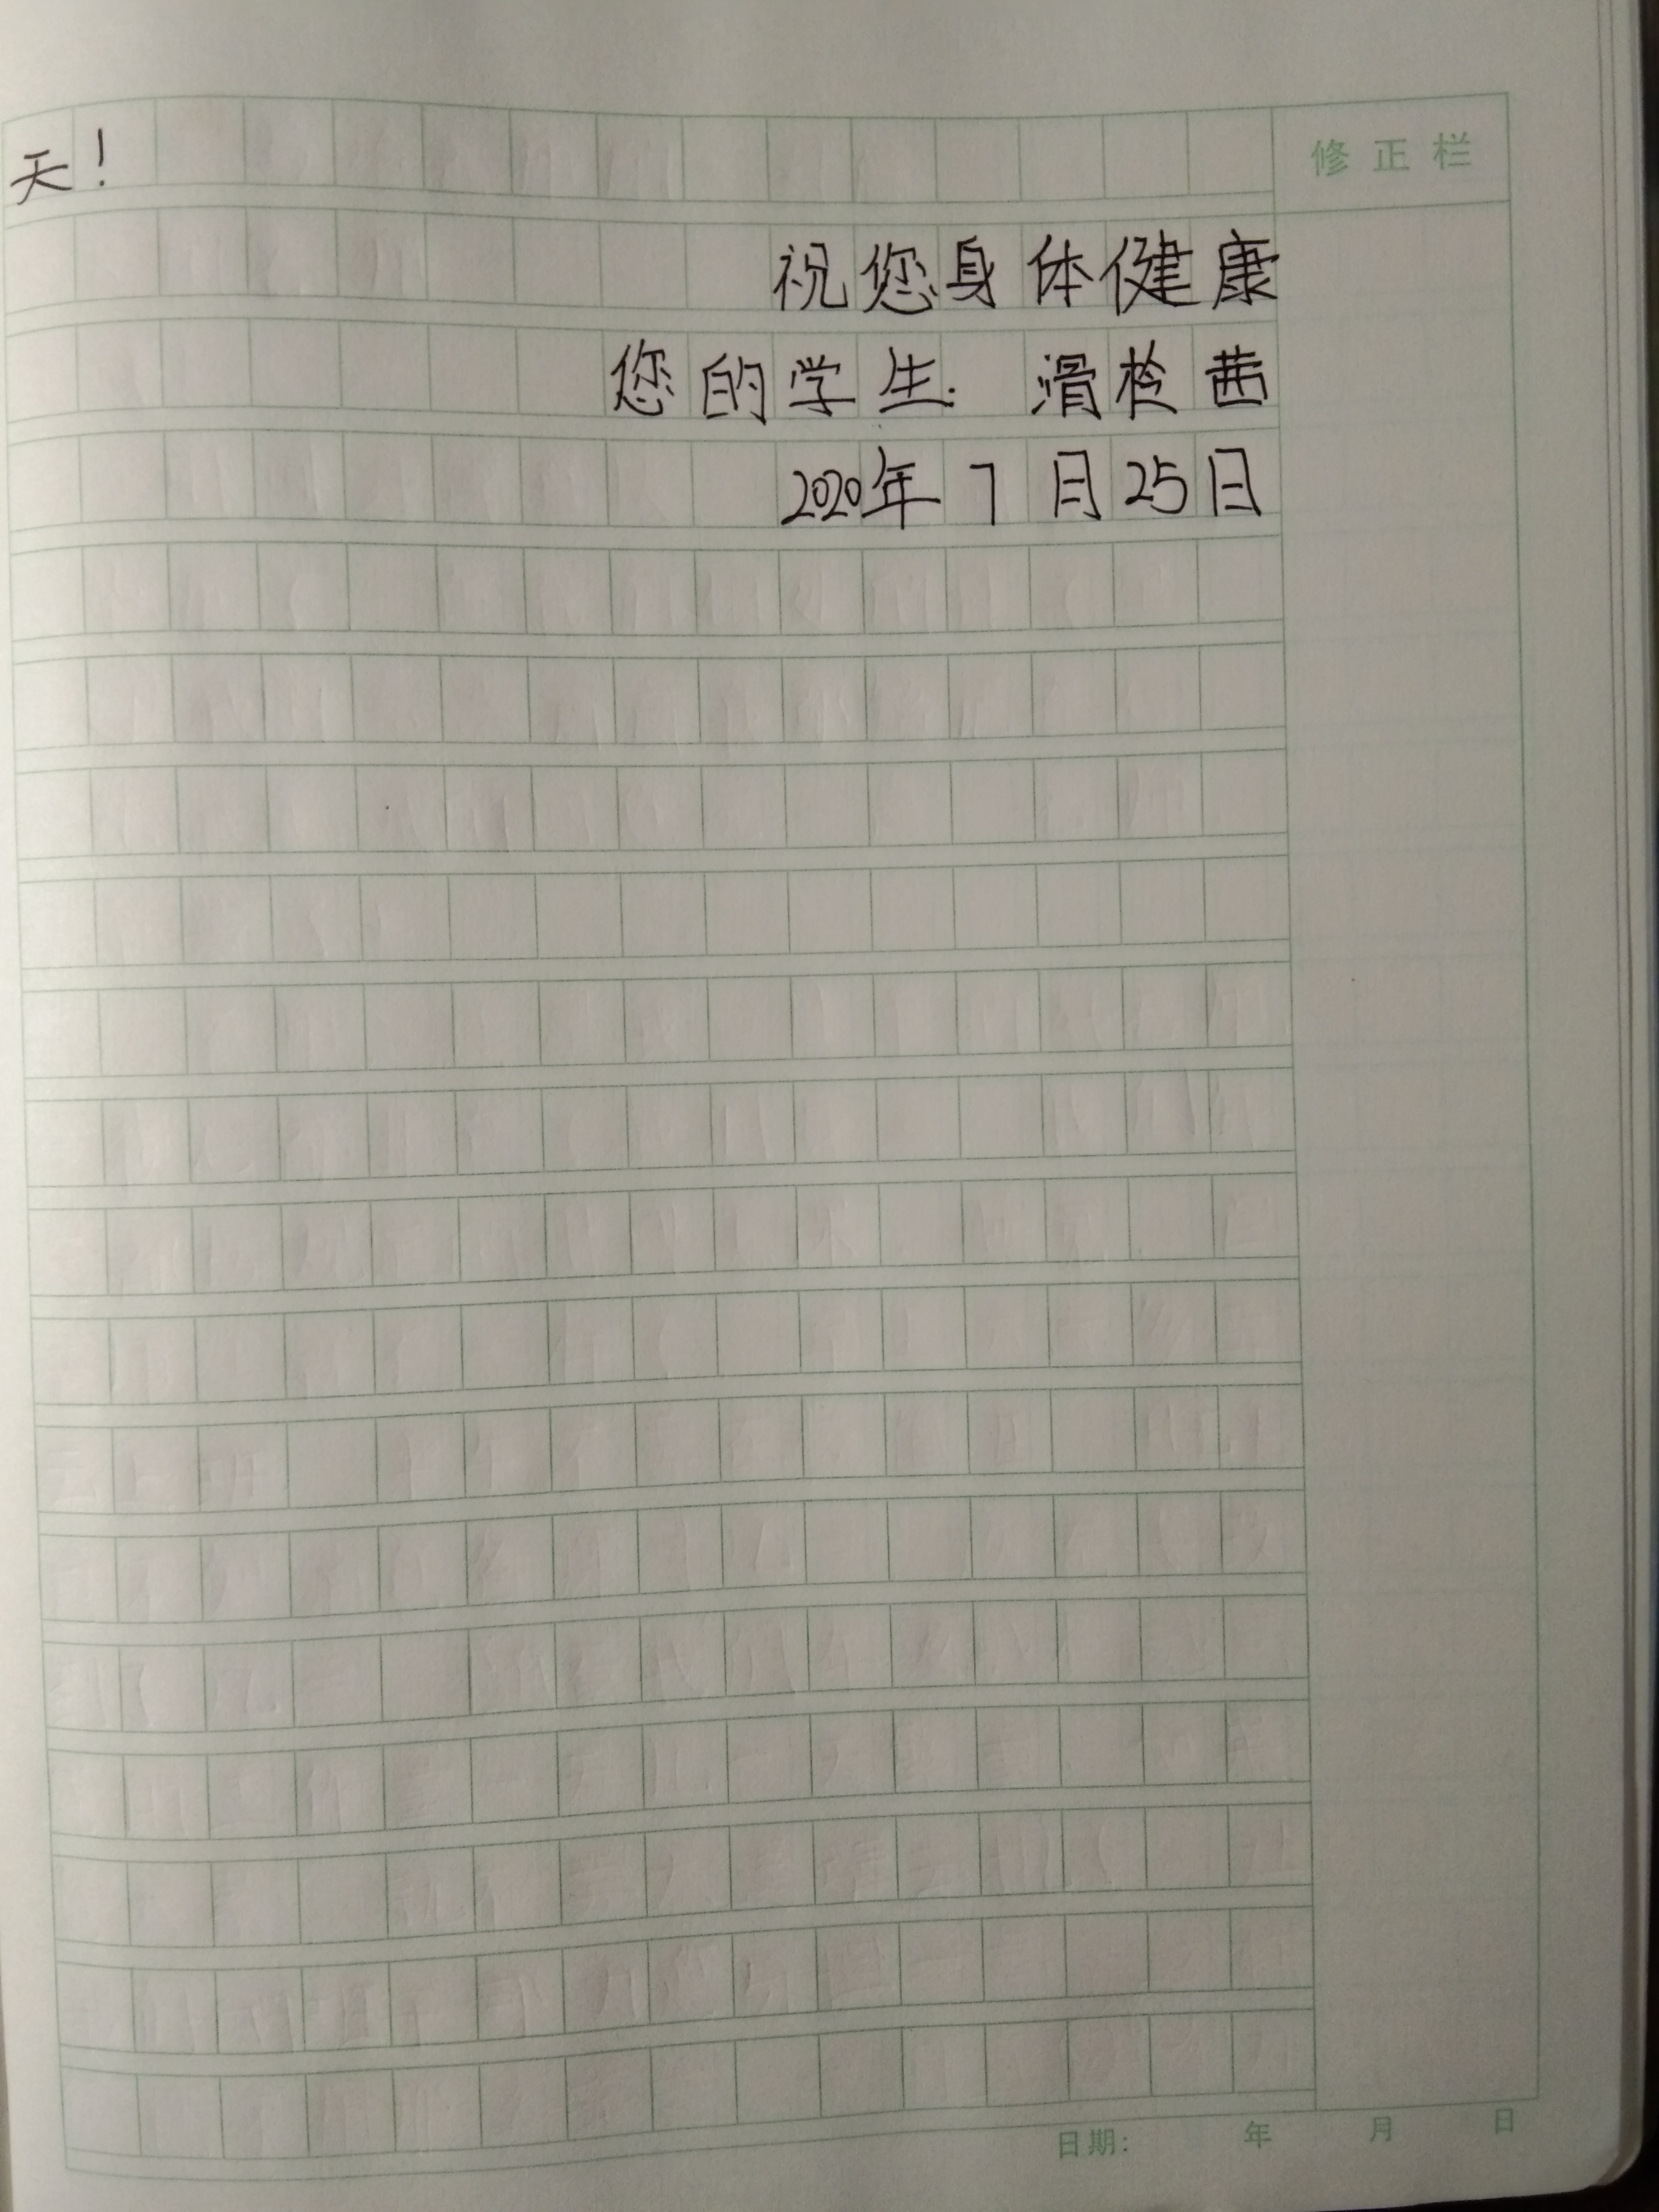 天！
修正栏
祝您身体健康
您的学生：滑
茜
2020年7月25日
日期： 年 月 日